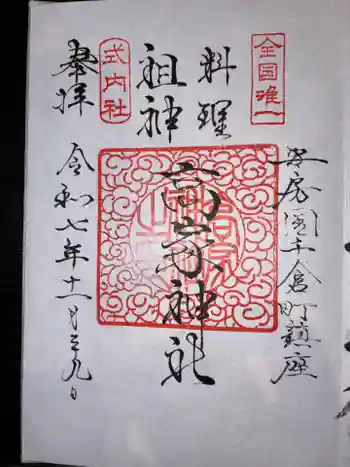 全国唯一
料理
祖神
式内社
奉拝
安房国千倉町鎮座
高家神社
令和七年十一月二九日